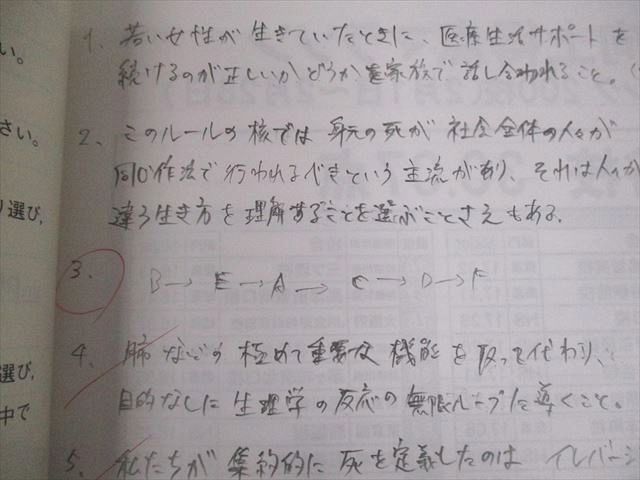 い。
さい。
選び,
選び,
中で
1. 若い女性が生きていたときに、医療生活サポートを
続けるのが正しいかどうか家族で話し合われること。
2. このルールの核では身元の死が社会全体の人々が
同じ作法で行われるべきという主流があり、それは人々が
違う生き方を理解することを選ぶことさえもある。
3. B→E→A→C→D→F
4. 肺などの極めて重要な機能を取って代わり、
目的なしに生理学の反応の無限ループに導くこと。
5. 私たちが集約的に死を定義したのは